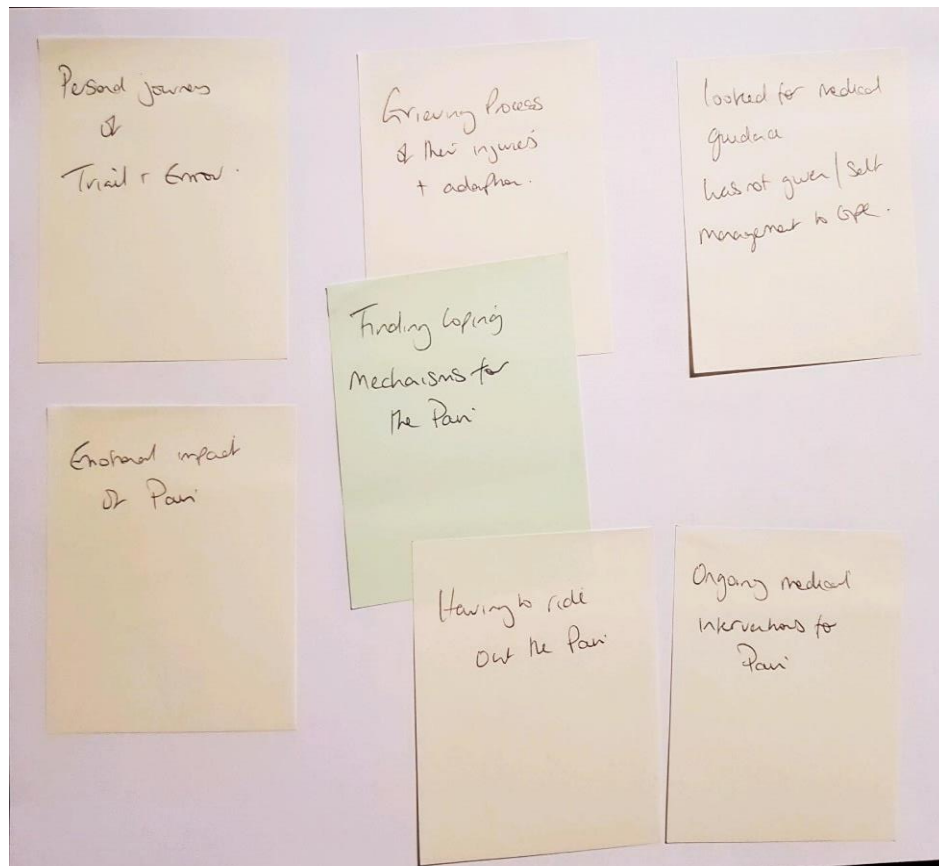 Personal journey
of
Triail + Error.
Grieving Process
of their injuries
+ adaption.
looked for medical
guidance
has not given / self
management to cope.
Finding Coping
Mechaisms for
the Pain
Emotional impact
of Pain
Having to ride
out the Pain
Ongoing medical
interventions for
Pain